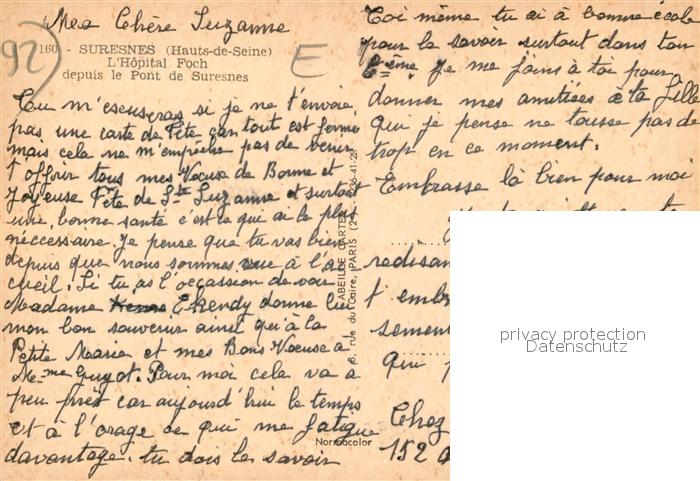 Ma Chère Suzanne
92
160 - SURESNES (Hauts-de-Seine)
L'Hôpital Foch
depuis le Pont de Suresnes
E
Tu m'escuseras si je ne t'envoie
pas une carte de Fête car tout est fermé
mais cela ne m'empêche pas de venir
t'offrir tous mes Voeuse de Bonne et
Joyeuse Fête de Ste Suzanne et surtout
une bonne santé c'est ce qui ai le plus
néccessaire. Je pense que tu vas bien
depuis que nous sommes vue à l'ac
cueil. Si tu as l'occassion de voir
Madame Ekendy donne lui
mon bon souvenir ainsi qu'à la
Petite Maria et mes Bons Voeuse a
Mme Guyot. Pour moi cela va a
peu près car aujourd'hui le temps
est à l'orage ce qui me fatigue
davantage. tu dois le savoir
ABEILLE CARTES
8, rue du Caire, PARIS (2e)
Normacolor
Toi même tu ai à bonne école
pour le savoir surtout dans ton
6ème. Je me joins à toi pour
donner mes amitiées à ta fille
qui je pense ne tousse pas de
trop en ce moment.
Embrasse là bien pour moi
redisan
t'embr
semen
qui
Chez
152
privacy protection
Datenschutz